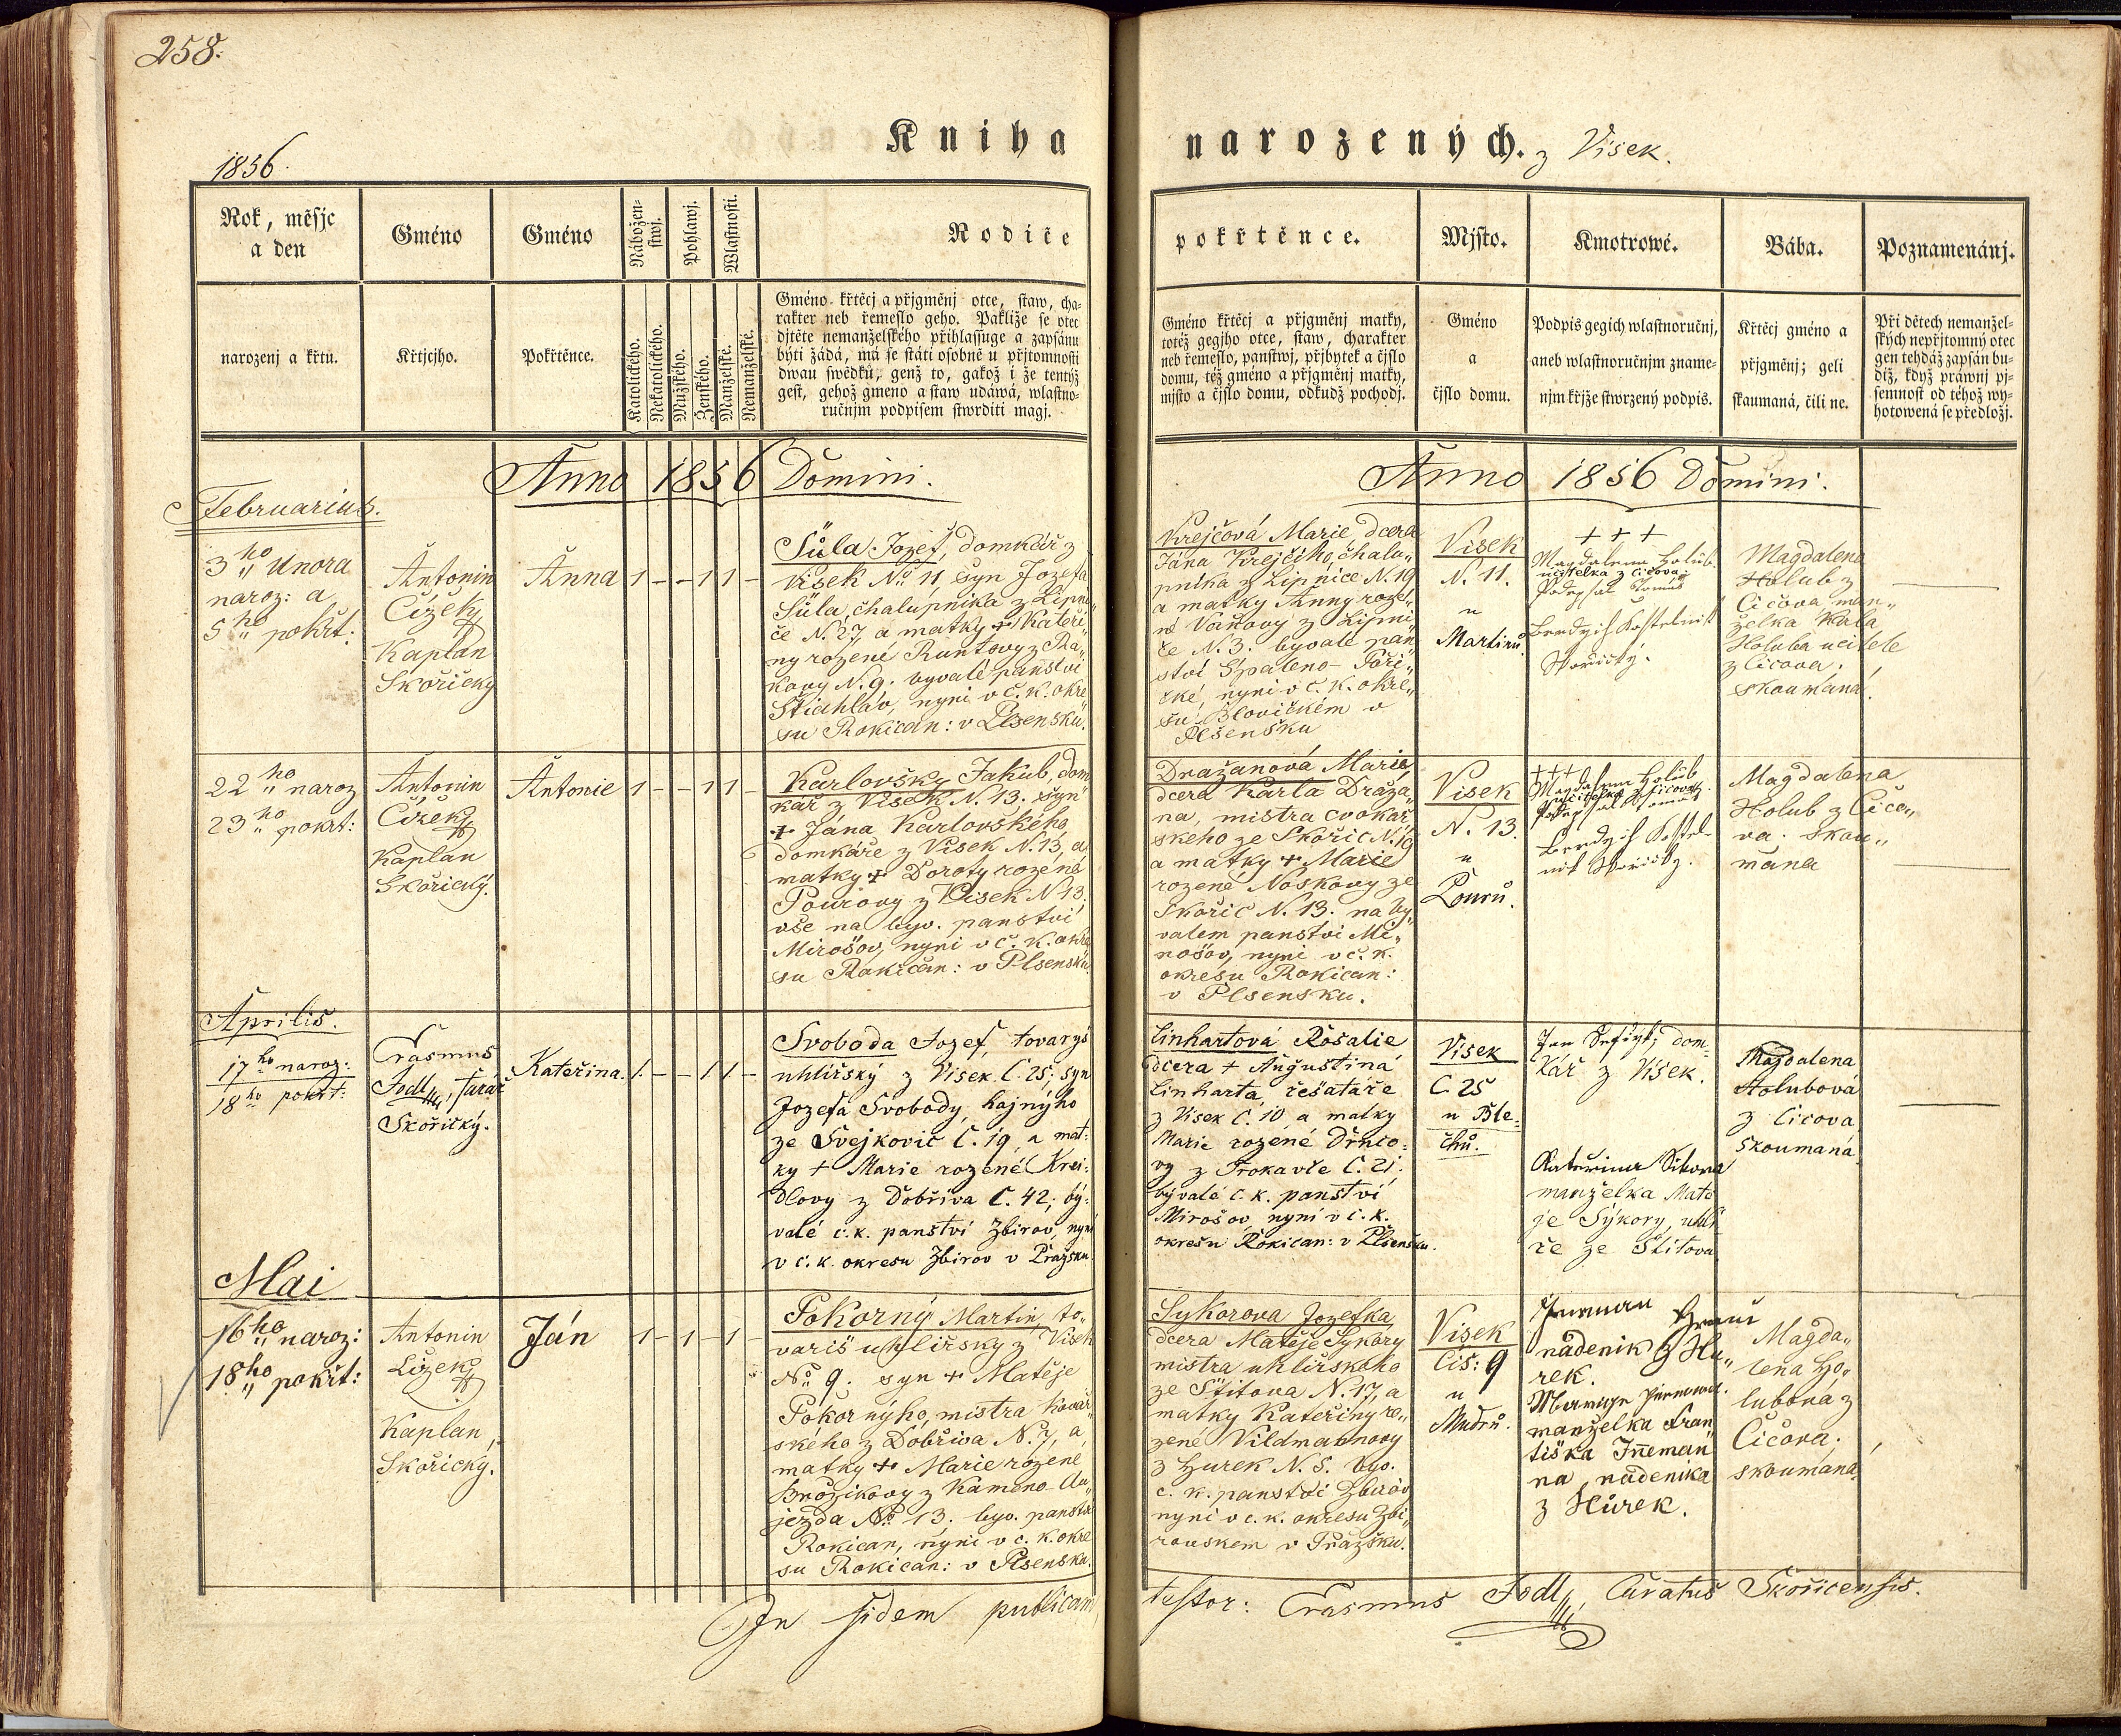 258.
Kniha
narozených. z Visek.
1856.
Rok, měsjc
a den
Gméno
Gméno
Nábožen-
stwj.
Pohlawj.
Wlastnosti.
Rodiče
pokřtěnce.
Mjsto.
Kmotrowé.
Bába.
Poznamenánj.
narozenj a křtu.
Křtjcjho.
Pokřtěnce.
Katolického.
Nekatolického.
Mužského.
Ženského.
Manželské.
Nemanželské.
Gméno křtěcj a přjgměnj otce, staw, cha-
rakter neb řemeslo geho. Pakliže se otec
djtěte nemanželského přihlassuge a zapsánu
býti žádá, má se státi osobně u přjtomnosti
dwau swědků, genž to, gakož i že tentýž
gest, gehož gmeno a staw udáwá, wlastno-
ručnjm podpisem stwrditi magj.
Gméno křtěcj a přjgměnj matky,
totéž gegjho otce, staw, charakter
neb řemeslo, panstwj, přjbytek a čjslo
domu, též gméno a přjgměnj matky,
mjsto a čjslo domu, odkudž pochodj.
Gméno
a
čjslo domu.
Podpis gegich wlastnoručnj,
aneb wlastnoručnjm zname-
njm křjže stwrzený podpis.
Křtěcj gméno a
přjgměnj; geli
skaumaná, čili ne.
Při dětech nemanžel-
ských nepřjtomný otec
gen tehdáž zapsán bu-
diž, když práwnj pj-
semnost od téhož wy-
hotowená se předložj.
Anno 1856 Domini.
Anno 1856 Domini.
Februarius.
3ho Unora
naroz: a
5ho pokřt:
Antonin
Čížek
Kaplan
Skořický
Anna
1 - - 1 1 -
Šůla Jozef, domkář z
Visek No 11, syn Jozefa
Šůla, chalupnika z Lipni„
če N. 27 a matky + Kateři„
ny rozené Runtovy z Ra„
kovy N. 9. byvalé panství
Štiahlav, nyni v č. k. okre„
su Rokican: v Plsensku.
Krejčová Marie, dcera
Jána Krejčího, chalu„
pnika z Lipnice N. 19
a matky Anny roze„
né Vaňovy z Lipni„
če N. 3. byvalé pan„
ství Spaleno-Poři„
čké, nyni v č. k. okre„
su Blovičkém v
Plsensku
Visek
N. 11.
u
Martinů.
+ + +
Magdalena Holub
učitelka z Čičova.
Magdalena
Holub z
Čičova man„
želka Karla
Holuba učitele
z Čicova.
skoumána.
22ho naroz
23ho pokřt:
Antonin
Čížek
Kaplan
Skořický.
Antonie
1 - - 1 1 -
Karlovský Jakub, dom
kář z Visek N. 13. syn
+ Jána Karlovského
domkáře z Visek N. 13, a
matky + Doroty rozené
Pourovy z Visek N 13,
vše na byv. panství
Mirošov, nyni v č. k. okre
su Rokičan: v Plsensku
Dražanová Marie,
dcera Karla Draža„
na, mistra cvokař
skeho ze Skořic N. 19
a matky + Marie
rozené Noskovy ze
Skořic N. 13. na by„
valem panství Mi„
rošov, nyni v č. k.
okresu Rokican:
v Plsensku.
Visek
N. 13.
u
Pourů.
+++
Magdalena Holub
učitelka z Čičova.
Magdalena
Holub z Čičo„
va. skou„
mána
Aprilis.
17ho naroz:
18ho pokřt:
Erasmus
Jodl, farář
Skořický.
Kateřina.
1. - - 1 1 -
Svoboda Jozef, tovaryš
uhlířský z Visek. Č. 25, syn
Jozefa Svobody, hajného
ze Švejkovic Č. 19, a mat:
ky + Marie rozené Krei:
dlovy z Dobříva Č. 42; bý:
valé c. k. panství Zbirov, nyní
v c. k. okresu Zbirov v Pražsku.
Linhartová Rosalie
dcera + Augustina
Linharta, řešatáře
z Visek Č. 10 a matky
Marie rozené Drnco:
vy z Trokavče Č. 21.
bývalé c. k. panství
Mirošov, nyní v c. k.
okresu Rokican: v Plsensku.
Visek
C. 25
u Ple:
chů.
dom-
kář z Visek.
Kateřina Sikora
manželka Matě
je Sýkory, uhlí
ře ze Štitova
Magdalena
Holubová
z Čicova
skoumaná
Mai
16ho naroz:
18ho pokřt:
Antonin
Čížek
Kaplan,
Skořický.
Ján
1 - 1 - 1 -
Pokorný Martin, to„
variš uhlířský z Visek
No 9. syn + Matěje
Pokorného, mistra kovář„
ského z Dobřiva N. 7, a
matky + Marie rozené
Brožikovy z Kameno Au„
jezda No 13. byv. panství
Rokican, nyni v c. k. okre
su Rokican: v Plsensku.
Sykorova Jozefka,
dcera Matěje Sykory
mistra uhlířského
ze Štitova N. 17, a
matky Kateřiny ro„
zené Vildmannovy
z Hurek N. 5. byv.
c. k. panství Zbirov
nyni v c. k. okresu Zbi„
rovskem v Pražsku.
Visek
čis: 9
u
Mudrů.
nádenik z Hů„
rek.
manželka Fran
tiška Inneman
na, nádenika
z Hůrek.
Magda„
lena Ho„
lubová z
Čičova.
skoumaná
In fidem publicam
testor: Erasmus Jodl, Curatus Skořicensis.